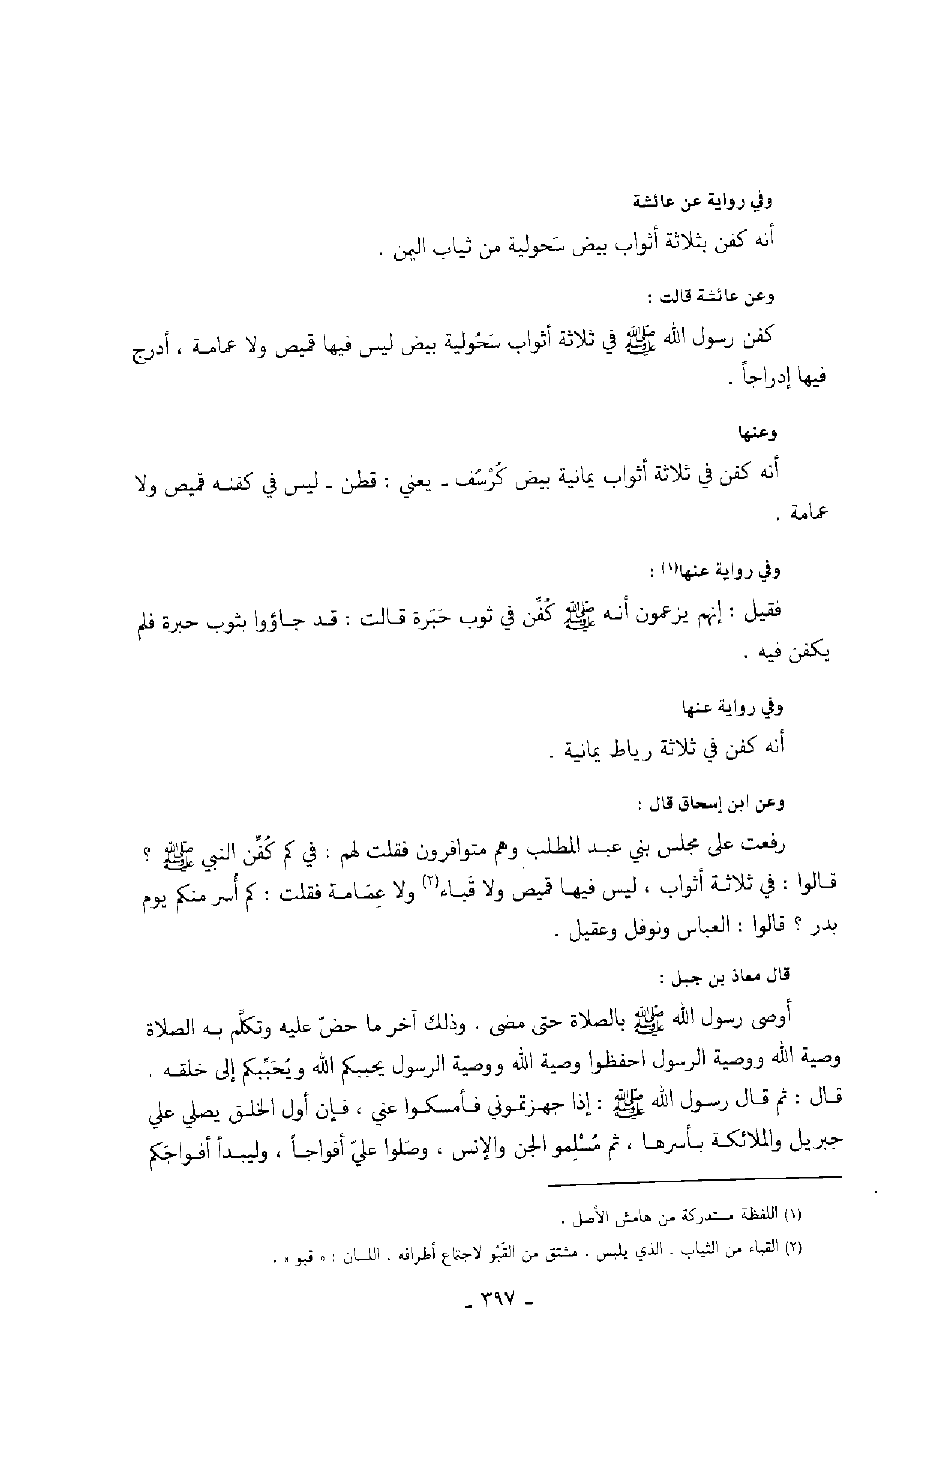 وفي رواية عن عائشة
أنه كفن بثلاثة أثواب بيض سَحولية من ثياب اليمن .
وعن عائشة قالت :
كفن رسول الله ﷺ في ثلاثة أثواب سَحُولية بيض ليس فيها قميص ولا عمامة ، أدرج
فيها إدراجاً .
وعنها
أنه كفن في ثلاثة أثواب يمانية بيض كُرْسُف ـ يعني : قطن ـ ليس في كفنه قميص ولا
عمامة .
وفي رواية عنها(١) :
فقيل : إنهم يزعمون أنه ﷺ كُفَّن في ثوب حَبَرة قالت : قد جاؤوا بثوب حبرة فلم
يكفن فيه .
وفي رواية عنها
أنه كفن في ثلاثة رياط يمانية .
وعن ابن إسحاق قال :
رفعت على مجلس بني عبد المطلب وهم متوافرون فقلت لهم : في كم كُفِّن النبي ﷺ ؟
قالوا : في ثلاثة أثواب ، ليس فيها قميص ولا قَباء(٢) ولا عِمَامة فقلت : كم أُسر منكم يوم
بدر ؟ قالوا : العباس ونوفل وعقيل .
قال معاذ بن جبل :
أوصى رسول الله ﷺ بالصلاة حتى مضى . وذلك آخر ما حضّ عليه وتكلَّم به الصلاة
وصية الله ووصية الرسول احفظوا وصية الله ووصية الرسول يحببكم الله ويُحَبِّبكم إلى خلقه .
قال : ثم قال رسول الله ﷺ : إذا جهزتموني فأمسكوا عني ، فإن أول الخلق يصلي علي
جبريل والملائكة بأسرها ، ثم مُسْلِمو الجن والإنس ، وصَلوا عليّ أفواجاً ، وليبدأ أفواجكم
(١) اللفظة مستدركة من هامش الأصل .
(٢) القباء من الثياب . الذي يلبس . مشتق من القَبْو لاجتماع أطرافه . اللسان : « قبو » .
ـ ٣٩٧ ـ